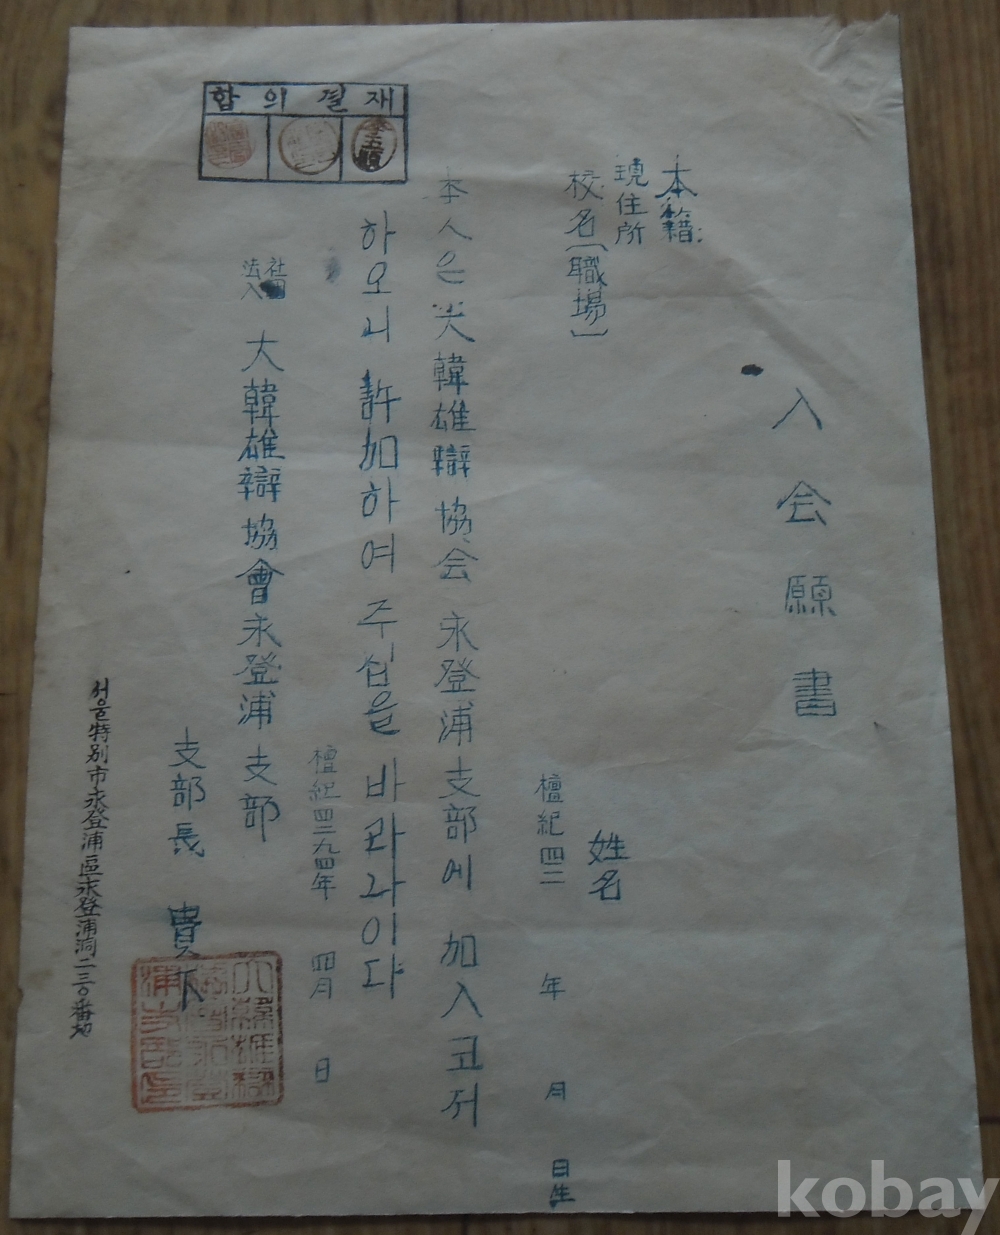 入会願書
本籍
現住所
校名(職場)
姓名
檀紀四二 年 月 日生
本人은 大韓雄辯協会 永登浦支部에 加入코저
하오니 許加하여 주심을 바라나이다
檀紀四二九四年 四月 日
社團
法人
大韓雄辯協會永登浦支部
支部長 貴下
서울特別市永登浦區永登浦洞二三〇番地
합의결재
李五順
kobay